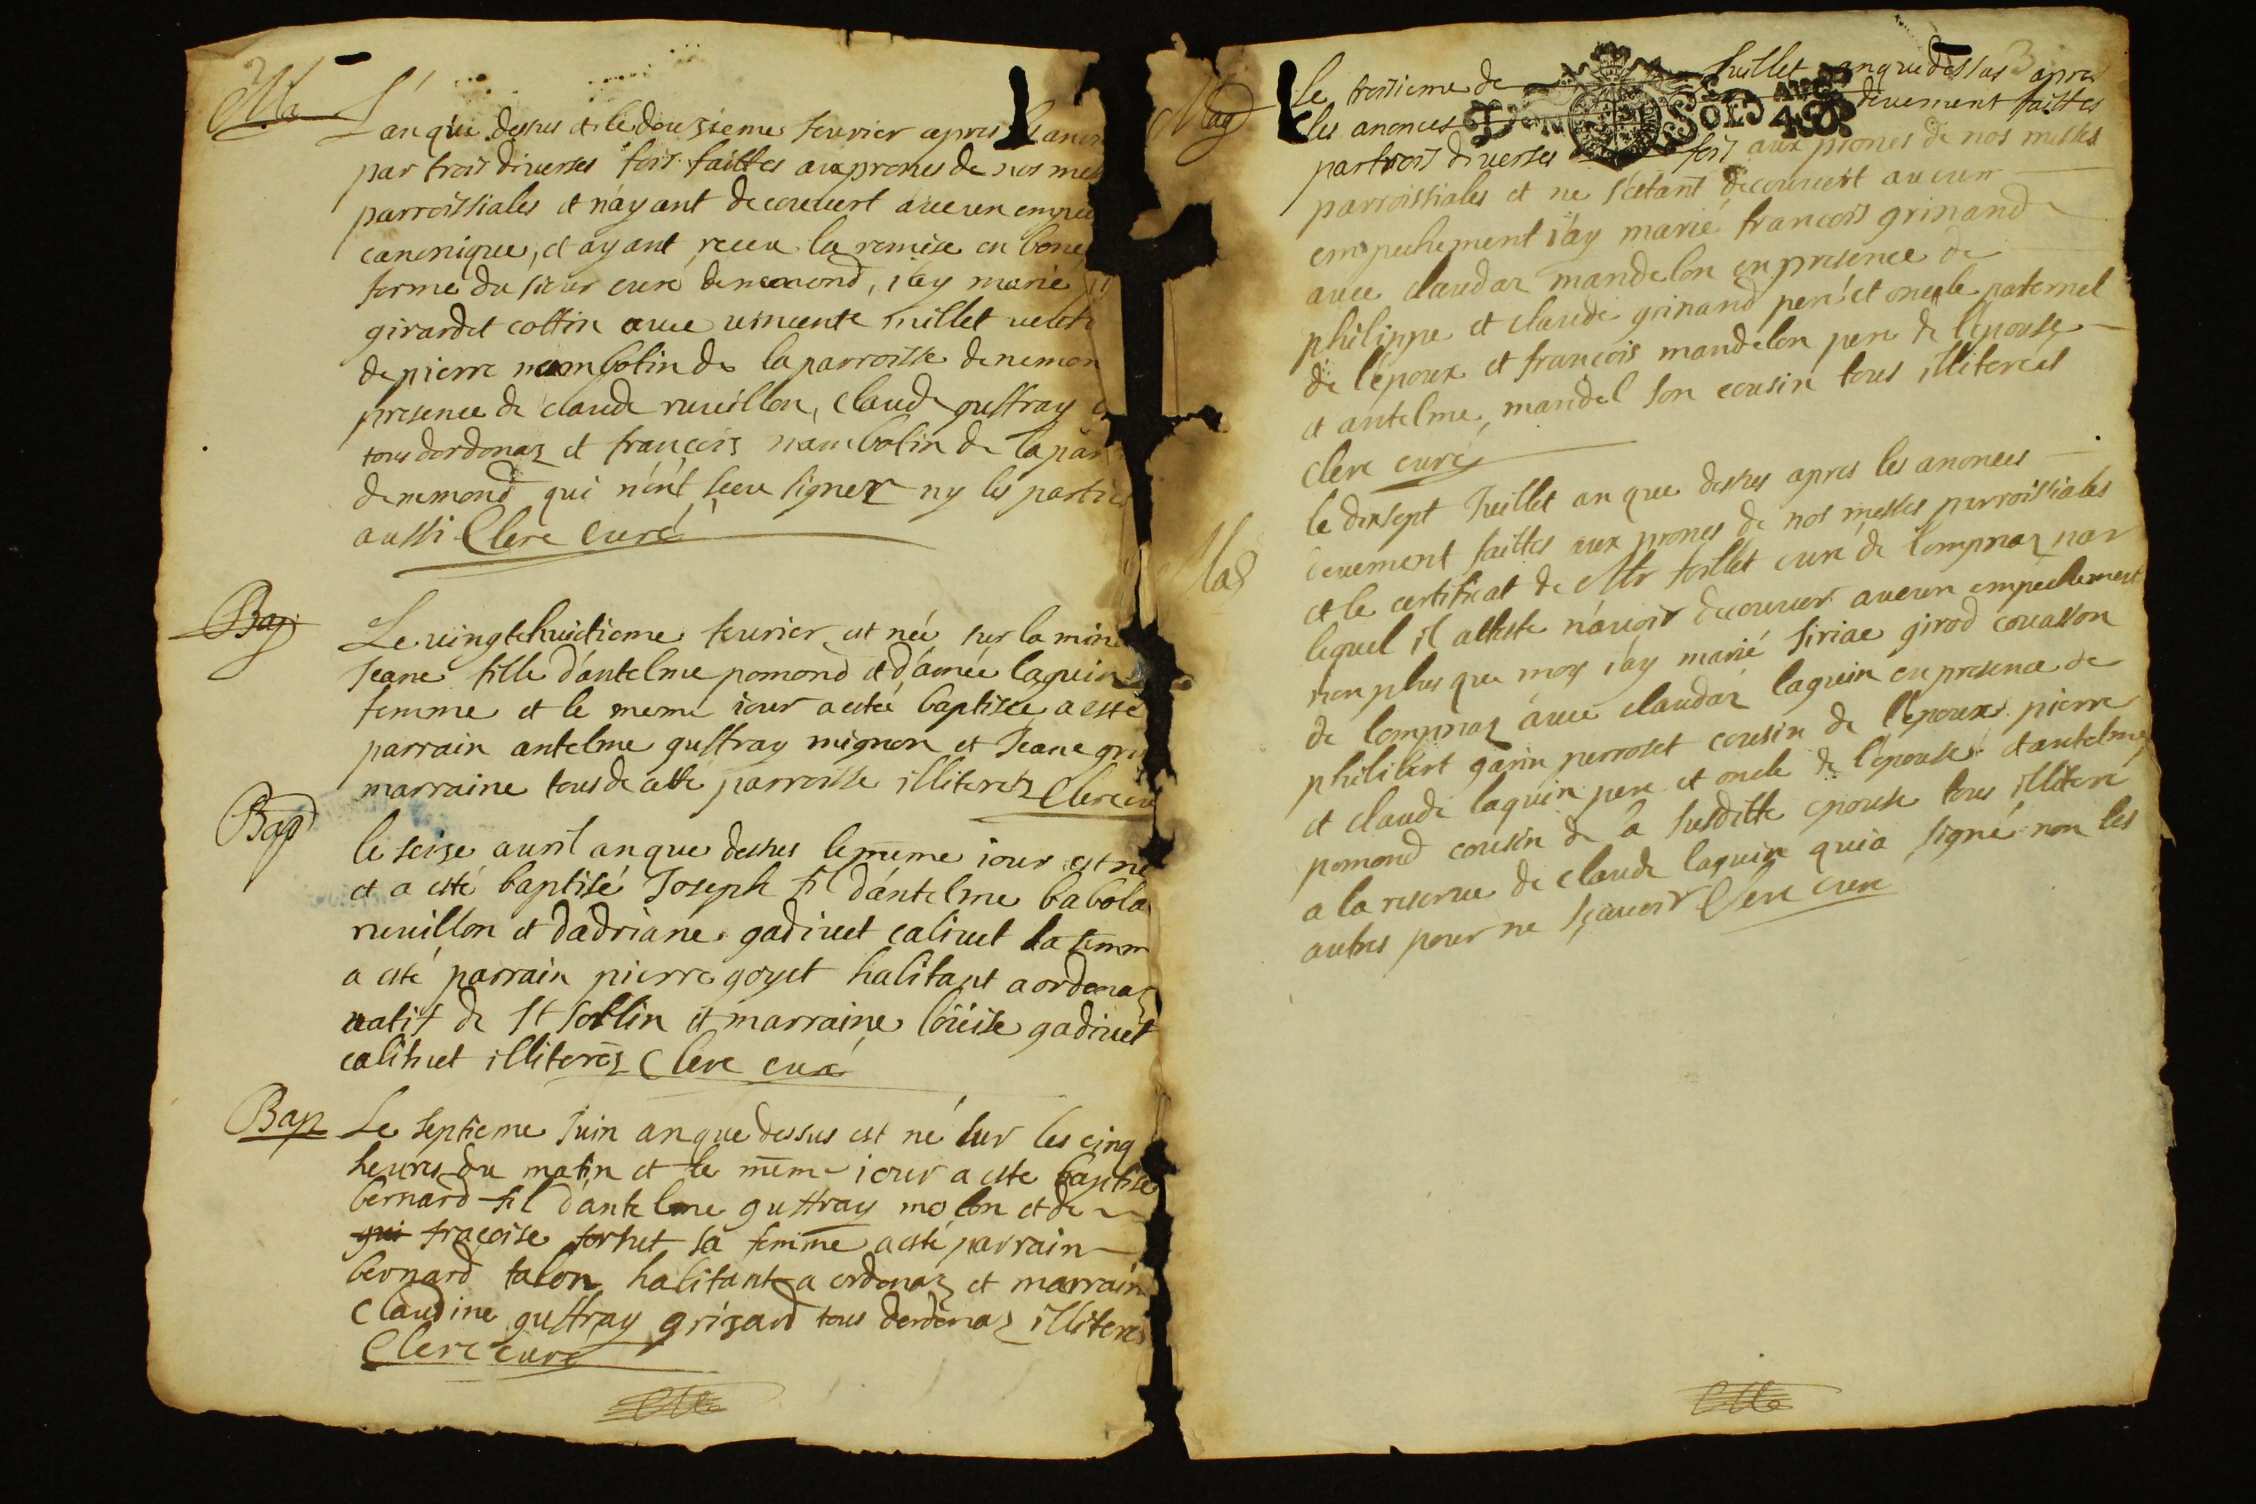 Ma
L'an que dessus et le douzieme feurier apres les anon
par trois diverses fois faittes aux prones de nos mes
parroissiales et n'ayant decouuert aucun empec
canonique, et ayant receu la remise en bone
forme du sieur curé de nemond, i'ay marié
girardet cottin auec uincente millet ueufe
de pierre nambotin de la parroisse de nemon
presence de claude reuillon, claude guffray
tous dordonaz et françois nambotin de la par
de nemond qui n'ont sceu signer ny les parties
aussi Clerc Curé
Bap
Le uingt huictieme feurier est née sur la min
Jeane fille d'antelme pomond et d'aimée laguin
femme et le meme iour a esté baptisée a esté
parrain antelme guffray mignon et Jeane gri
marraine tous de cette parroisse illiterez Clerc cu
Bap
le seize auril an que dessus le meme iour est né
et a esté baptisé Joseph fil d'antelme babola
reuillon et dadriane gadiuet caliuet sa femm
a esté parrain pierre goyet habitant a ordonaz
natif de St sorlin et marraine loüise gadiuet
caliuet illiterez Clerc curé
Bap
Le septieme Juin an que dessus est né sur les cinq
heures du matin et le meme iour a esté baptisé
bernard fil d'antelme guffray molon et de
gui fraçoise forhet sa femme a esté parrain
bernard talon habitant a ordonaz et marrain
Claudine guffray grisard tous dordonaz illiteres
Clerc curé
Mag
le troisieme de Juillet an que dessus apres
les anonces deuement faittes
par trois diuerses fois aux prones de nos messes
parroissiales et ne s'etant decouuert aucun
empechement i'ay marié francois grinand
auec claudaz mandelon en presence de
philippe et claude grinand peré et oncle paternel
de l'epoux et francois mandelon pere de l'epouse
et antelme mandel son cousin tous illiterez
Clerc curé
Mag
le dixsept Juillet an que dessus apres les anonces
deuement faittes aux prones de nos messes parroissiales
et le certificat de Mr follet curé de lompnaz par
lequel il atteste n'auoir decouuer aucun empechement
non plus que moy i'ay marié siriac girod couasson
de lompnaz auec claudaz laguin en presence de
philibert garin perroset cousin de l'epoux pierre
et claude laguin pere et oncle de l'epouse et antelme
pomond cousin de la susditte epouse tous illiteré
a la reserue de claude laguin qui a signé non les
autres pour ne sçauoir Clerc curé